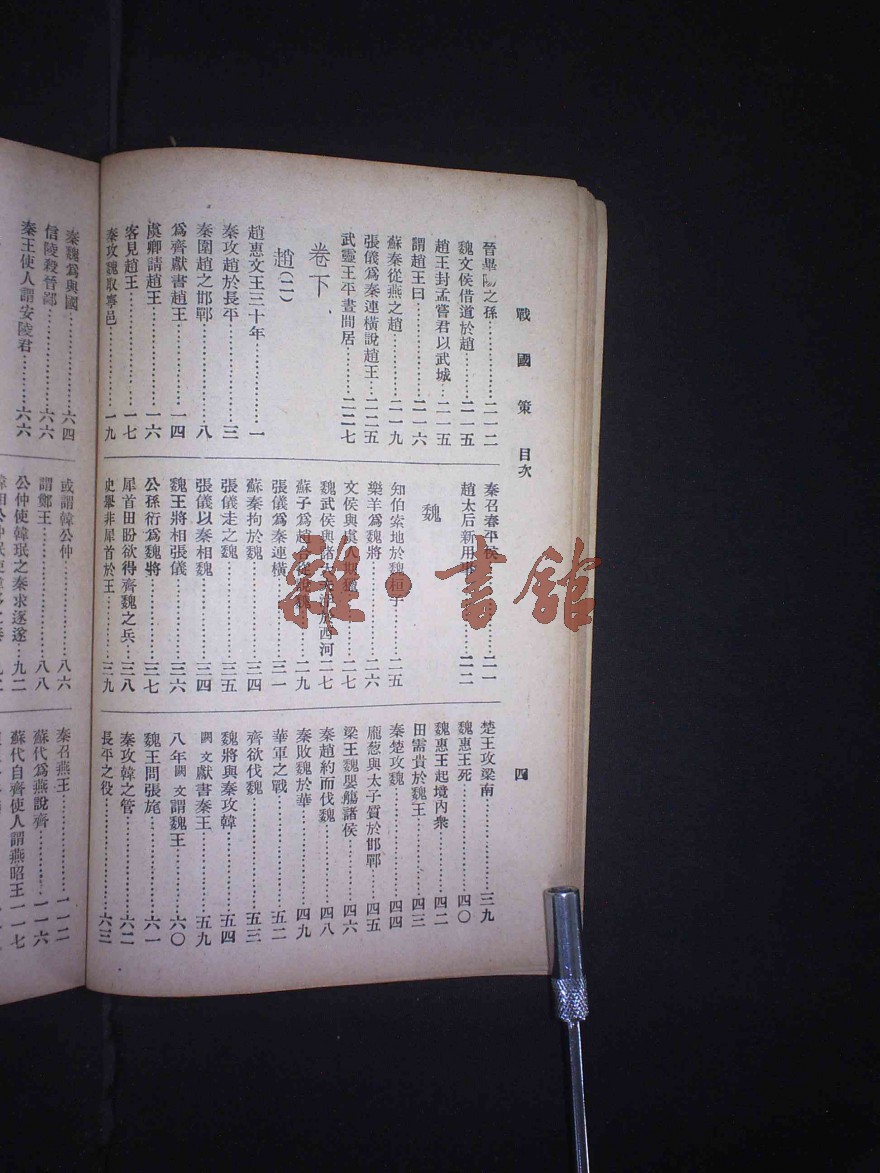 戰國策 目次
四
晉畢陽之孫……二一二
魏文侯借道於趙……二一五
趙王封孟嘗君以武城…二一五
謂趙王曰……二一六
蘇秦從燕之趙……二一九
張儀爲秦連橫說趙王…二二五
武靈王平晝間居……二二七
卷下
趙(二)
趙惠文王三十年……一
秦攻趙於長平……三
秦圍趙之邯鄲……八
爲齊獻書趙王……一四
虞卿請趙王……一六
客見趙王……一七
秦攻魏取寧邑……一九
秦召春平侯……二一
趙太后新用事……二二
魏
知伯索地於魏桓子……二五
樂羊爲魏將……二六
文侯與虞人期獵……二七
魏武侯與諸大夫浮於西河二七
蘇子爲趙合從說魏……二九
張儀爲秦連橫……三一
蘇秦拘於魏……三四
張儀走之魏……三五
張儀以秦相魏……三四
魏王將相張儀……三六
公孫衍爲魏將……三七
犀首田盼欲得齊魏之兵…三八
史舉非犀首於王……三九
楚王攻梁南……三九
魏惠王死……四〇
魏惠王起境內衆……四二
田需貴於魏王……四三
秦楚攻魏……四四
龐葱與太子質於邯鄲……四五
梁王魏嬰觴諸侯……四六
秦趙約而伐魏……四八
秦敗魏於華……四九
華軍之戰……五二
齊欲伐魏……五三
魏將與秦攻韓……五四
闕文獻書秦王……五九
八年闕文謂魏王……六〇
魏王問張旄……六一
秦攻韓之管……六二
長平之役……六三
秦魏爲與國……六四
信陵殺晉鄙……六六
秦王使人謂安陵君……六六
或謂韓公仲……八六
謂鄭王……八八
公仲使韓珉之秦求逐遂…九二
秦召燕王……一一二
蘇代爲燕說齊……一一六
蘇代自齊使人謂燕昭王一一七
雜·書館